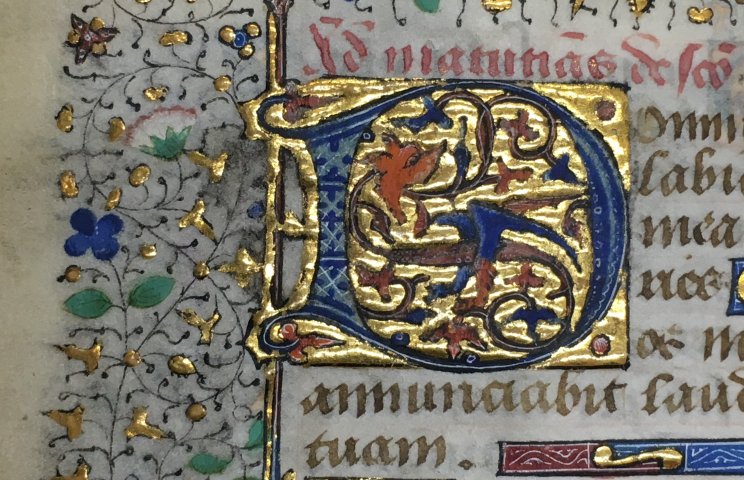 Ad matutinas de sco
Domi
labi
mea
ries
os m
annunciabit laud
tuam.